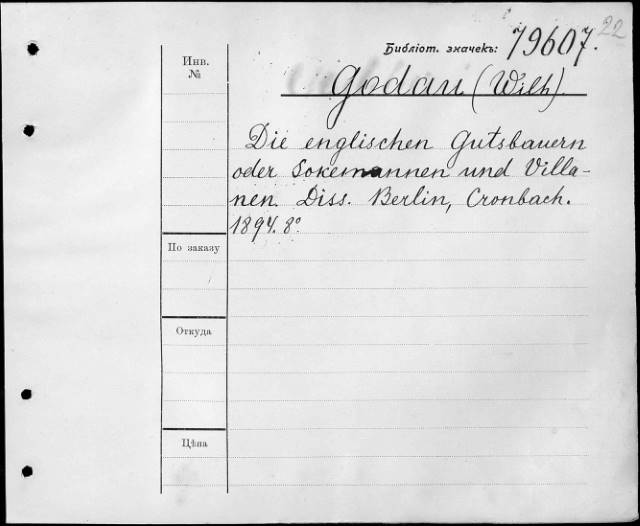 22
Библіот. значекъ: 79607.
Инв.
№
Godau (Wilh).
Die englischen Gutsbauern
oder Sokemannen und Villa-
nen. Diss. Berlin, Cronbach.
1894. 8º
По заказу
Откуда
Цѣна